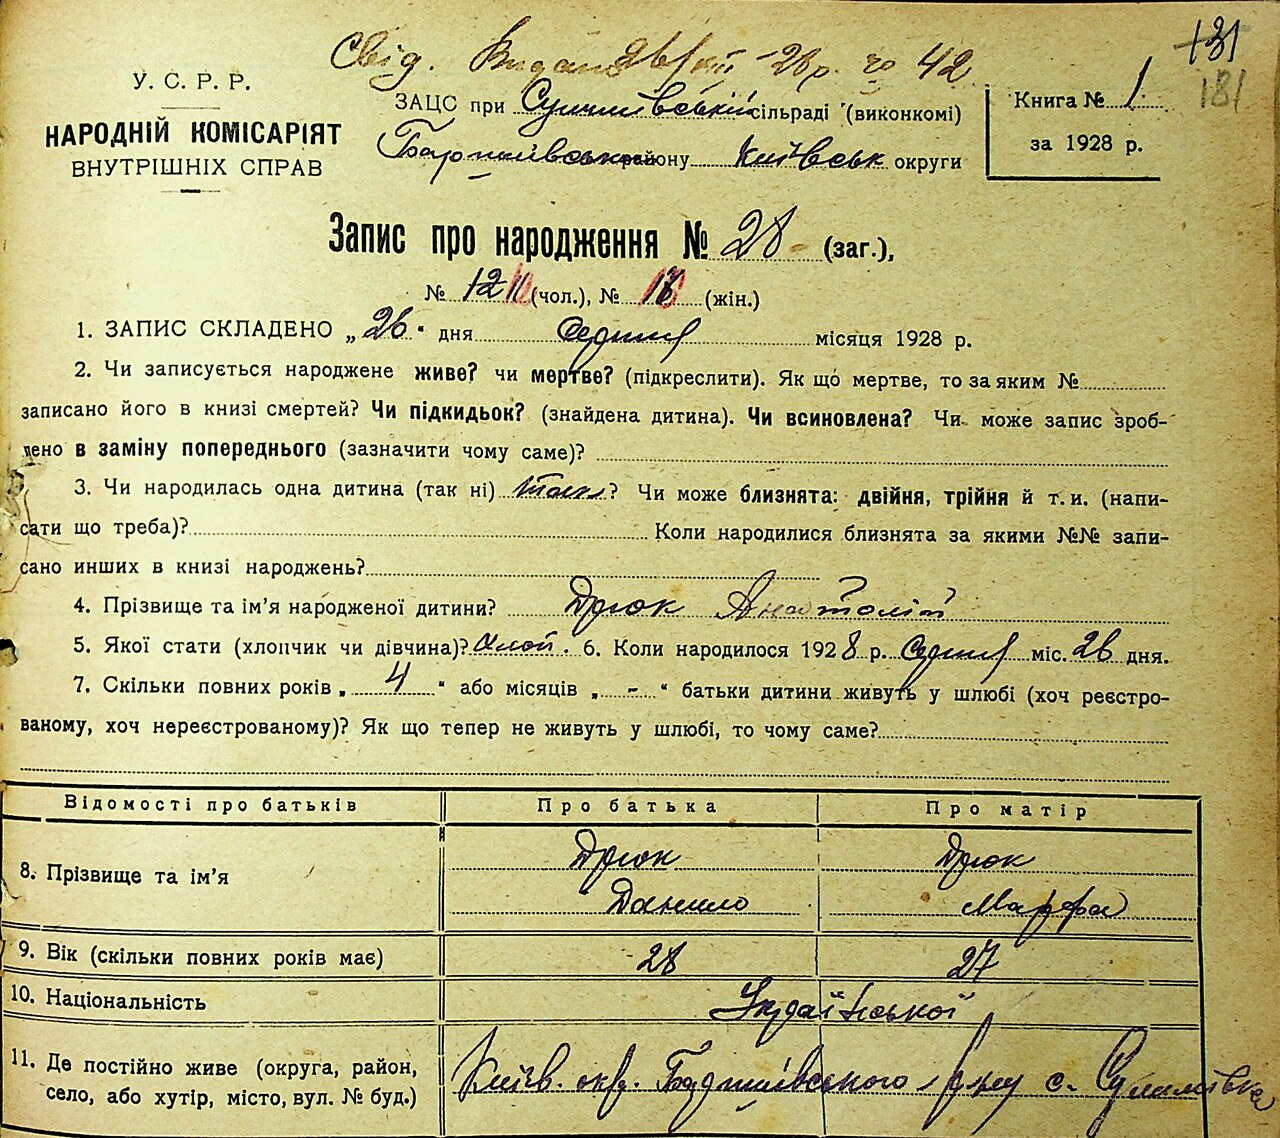 Свід. Видан 26/VIII 28 р. за 42
131
181
У. С. Р. Р.
НАРОДНІЙ КОМІСАРІЯТ
ВНУТРІШНІХ СПРАВ
ЗАЦС при Сулимівській сільраді (виконкомі)
Баришівськ району Київськ округи
Книга № 1
за 1928 р.
Запис про народження № 28 (заг.),
№ 12 11 (чол.), № 18 (жін.)
1. ЗАПИС СКЛАДЕНО „26“ дня Серпня місяця 1928 р.
2. Чи записується народжене живе? чи мертве? (підкреслити). Як що мертве, то за яким №
записано його в книзі смертей? Чи підкидьок? (знайдена дитина). Чи всиновлена? Чи може запис зроб-
лено в заміну попереднього (зазначити чому саме)?
3. Чи народилась одна дитина (так ні) так? Чи може близнята: двійня, трійня й т. и. (напи-
сати що треба)? Коли народилися близнята за якими №№ запи-
сано инших в книзі народжень?
4. Прізвище та ім'я народженої дитини? Дрюк Анатолій
5. Якої стати (хлопчик чи дівчина)? Хлоп. 6. Коли народилося 1928 р. Серпня міс. 26 дня.
7. Скільки повних років „4“ або місяців „-“ батьки дитини живуть у шлюбі (хоч реєстро-
ваному, хоч нереєстрованому)? Як що тепер не живуть у шлюбі, то чому саме?
Відомості про батьків Про батька Про матір
8. Прізвище та ім'я Дрюк Данило Дрюк Марфа
9. Вік (скільки повних років має) 28 27
10. Національність Української
11. Де постійно живе (округа, район,
село, або хутір, місто, вул. № буд.) Київ. окр. Баришівського р-ну с. Сулимівка